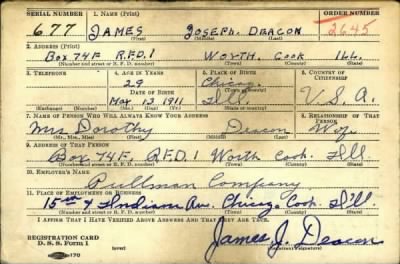 SERIAL NUMBER 1. NAME (Print) ORDER NUMBER
677 JAMES JOSEPH DEACON 2645
(First) (Middle) (Last)
2. ADDRESS (Print)
BOX 74F R.F.D.1 WORTH, COOK ILL.
(Number and street or R. F. D. number) (Town) (County) (State)
3. TELEPHONE 4. AGE IN YEARS 5. PLACE OF BIRTH 6. COUNTRY OF CITIZENSHIP
29 Chicago
DATE OF BIRTH (Town or county)
Mar 13 1911 Ill. U.S.A.
(Exchange) (Number) (Mo.) (Day) (Yr.) (State or country)
7. NAME OF PERSON WHO WILL ALWAYS KNOW YOUR ADDRESS 8. RELATIONSHIP OF THAT PERSON
Mrs Dorothy Deacon Wife
(Mr., Mrs., Miss) (First) (Middle) (Last)
9. ADDRESS OF THAT PERSON
Box 74F R.F.D 1 Worth Cook Ill
(Number and street or R. F. D. number) (Town) (County) (State)
10. EMPLOYER'S NAME
Pullman Company
11. PLACE OF EMPLOYMENT OR BUSINESS
15th & Indiana Av. Chicag. Cook. Ill
(Number and street or R. F. D. number) (Town) (County) (State)
I AFFIRM THAT I HAVE VERIFIED ABOVE ANSWERS AND THAT THEY ARE TRUE.
REGISTRATION CARD
D. S. S. Form 1 (over)
James J. Deacon
(Registrant's signature)